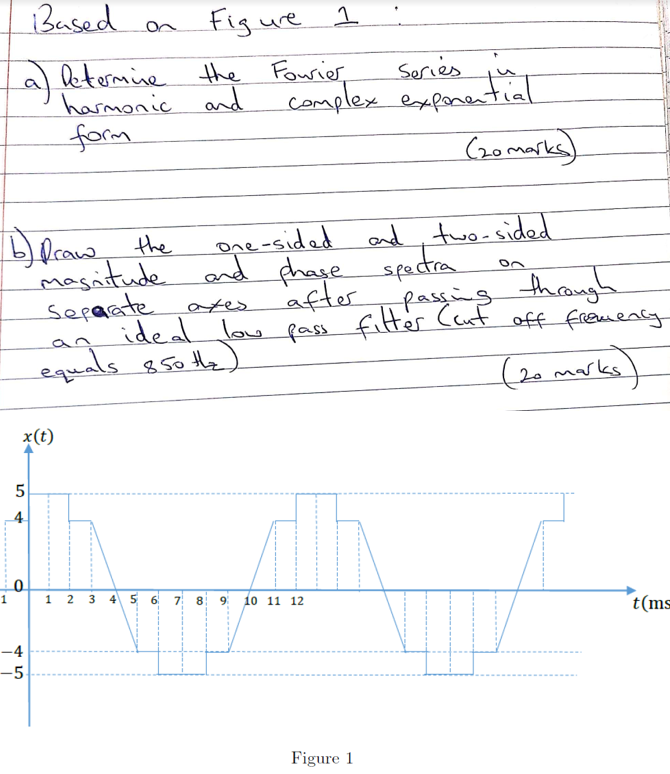 Based on Figure 1 :
a) Determine the Fourier Series in
harmonic and complex exponential
form
(20 marks)
b) Draw the one-sided and two-sided
magnitude and phase spectra on
separate axes after passing through
an ideal low pass filter (cut off frequency
equals 850 Hz)
(20 marks)
x(t)
5
4
0
1 1 2 3 4 5 6 7 8 9 10 11 12
t(ms
−4
−5
Figure 1